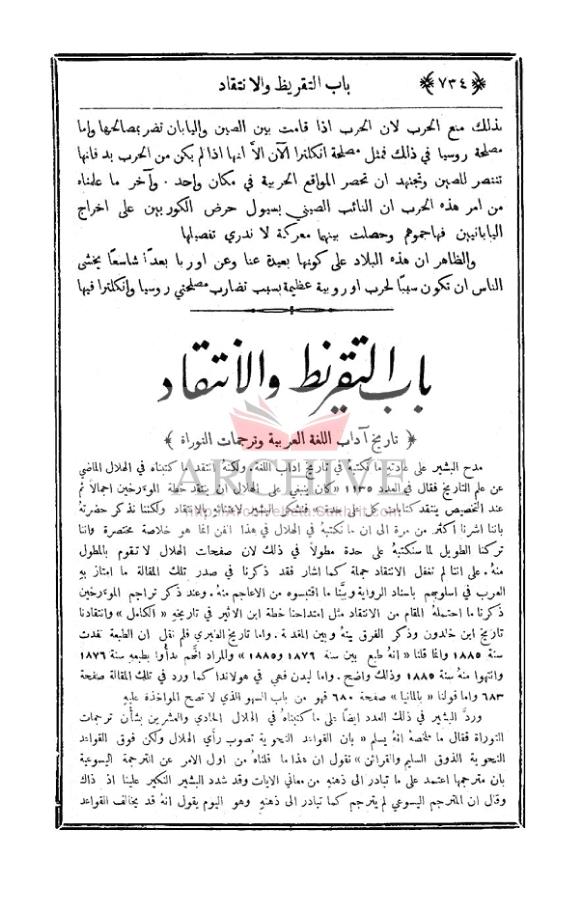 ﴿٧٣٤﴾ باب التقريظ والانتقاد
بذلك منع الحرب لان الحرب اذا قامت بين الصين واليابان تضر بمصالحها واما
مصلحة روسيا في ذلك فمثل مصلحة انكلترا الآن الا انها اذا لم يكن من الحرب بد فانها
تنتصر للصين وتجتهد ان تحصر المواقع الحربية في مكان واحد · وآخر ما علمناه
من امر هذه الحرب ان النائب الصيني بسيول حرض الكوريين على اخراج
اليابانيين فهاجموهم وحصلت بينهما معركة لا ندري تفصيلها
والظاهر ان هذه البلاد على كونها بعيدة عنا وعن اوربا بعدًا شاسعًا يخشى
الناس ان تكون سببًا لحرب اوروبية عظيمة بسبب تضارب مصلحتي روسيا وانكلترا فيها
باب التقريظ والانتقاد
﴿ تاريخ آداب اللغة العربية وترجمات التوراة ﴾
مدح البشير على عادته ما نكتبه في تاريخ آداب اللغة. ولكنه انتقد ما كتبناه في الهلال الماضي
عن علم التاريخ فقال في العدد ١١٣٥ « كان ينبغي على الهلال ان ينتقد خطة المؤرخين اجمالا ثم
عند التخصيص ينتقد كتابات كل على حدة » فنشكر البشير لاعتنائه بالانتقاد ولكننا نذكر حضرته
باننا اشرنا اكثر من مرة الى ان ما نكتبه في الهلال في هذا الفن انما هو خلاصة مختصرة واننا
تركنا الطويل لما سنكتبه على حدة مطولاً في ذلك لان صفحات الهلال لا تقوم بالمطول
منه. على اننا لم نغفل الانتقاد جملة كما اشار فقد ذكرنا في صدر تلك المقالة ما امتاز به
العرب في اسلوبهم باسناد الرواية وبيَّنا ما اقتبسوه من الاعاجم منه. وعند ذكر تراجم المؤرخين
ذكرنا ما احتمله المقام من الانتقاد مثل امتداحنا خطة ابن الاثير في تاريخه « الكامل » وانتقادنا
تاريخ ابن خلدون وذكر الفرق بينه وبين المقدمة. واما تاريخ الطبري فلم نقل ان الطبعة نفدت
سنة ١٨٨٥ وانما قلنا « انه طبع بين سنة ١٨٧٦ و١٨٨٥ » والمراد انهم بدأوا بطبعه سنة ١٨٧٦
وانتهوا منه سنة ١٨٨٥ وذلك واضح. واما ليدن فهي في هولاندا كما ورد في تلك المقالة صفحة
٦٨٣ واما قولنا « بالمانيا » صفحة ٦٨٠ فهو من باب السهو الذي لا تصح المواخذة عليه
وردَّ البشير في ذلك العدد ايضًا على ما كتبناه في الهلال الحادي والعشرين بشأن ترجمات
التوراة فقال ما ملخصه انه يسلم « بان القواعد النحوية تصوب رأي الهلال ولكن فوق القواعد
النحوية الذوق السليم والقرائن » نقول ان هذا ما قلناه من اول الامر عن الترجمة اليسوعية
بان مترجمها اعتمد على ما تبادر الى ذهنه من معاني الايات وقد شدد البشير النكير علينا اذ ذاك
وقال ان المترجم اليسوعي لم يترجم كما تبادر الى ذهنه وهو اليوم يقول انه قد يخالف القواعد
ARCHIVE